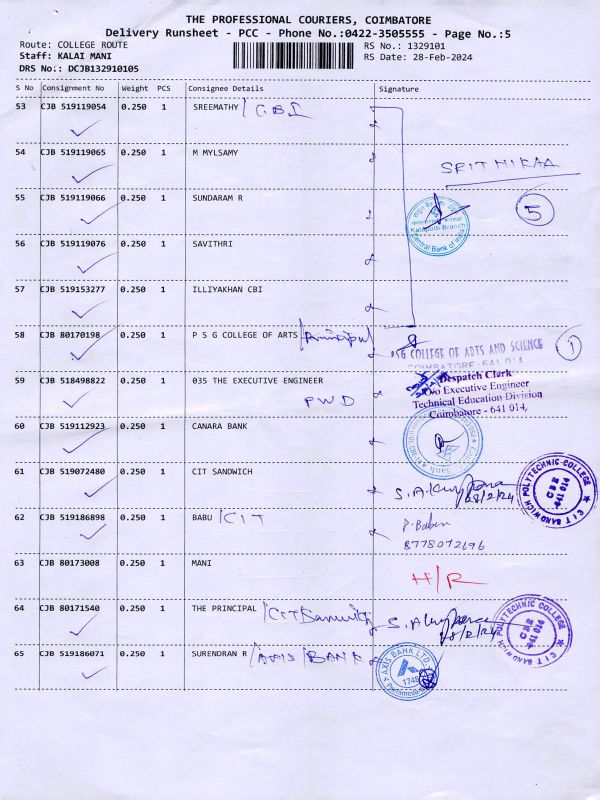 THE PROFESSIONAL COURIERS, COIMBATORE
Delivery Runsheet - PCC - Phone No.:0422-3505555 - Page No.:5
Route: COLLEGE ROUTE RS No.: 1329101
Staff: KALAI MANI RS Date: 28-Feb-2024
DRS No.: DCJB132910105
S No Consignment No Weight PCS Consignee Details Signature
53 CJB 519119054 0.250 1 SREEMATHY / CBI
54 CJB 519119065 0.250 1 M MYLSAMY
SRITHIKAA
55 CJB 519119066 0.250 1 SUNDARAM R
5
Kalapatti Branch
Central Bank of India
56 CJB 519119076 0.250 1 SAVITHRI
57 CJB 519153277 0.250 1 ILLIYAKHAN CBI
58 CJB 80170198 0.250 1 P S G COLLEGE OF ARTS / Principal
PSG COLLEGE OF ARTS AND SCIENCE 1
COIMBATORE - 641 014
59 CJB 518498822 0.250 1 035 THE EXECUTIVE ENGINEER
PWD
Despatch Clark
O/o Executive Engineer
Technical Education Division
Coimbatore - 641 014,
60 CJB 519112923 0.250 1 CANARA BANK
61 CJB 519072480 0.250 1 CIT SANDWICH
28/2/24
CIT SANDWICH POLYTECHNIC COLLEGE
CBE
641 014
62 CJB 519186898 0.250 1 BABU / CIT
P. Babu
8778072696
63 CJB 80173008 1 MANI
H/R
64 CJB 80171540 0.250 1 THE PRINCIPAL / CIT Sanwich
CIT SANDWICH POLYTECHNIC COLLEGE
CBE
641 014
65 CJB 519186071 0.250 1 SURENDRAN R / AXIS / BANK
AXIS BANK LTD.
1748